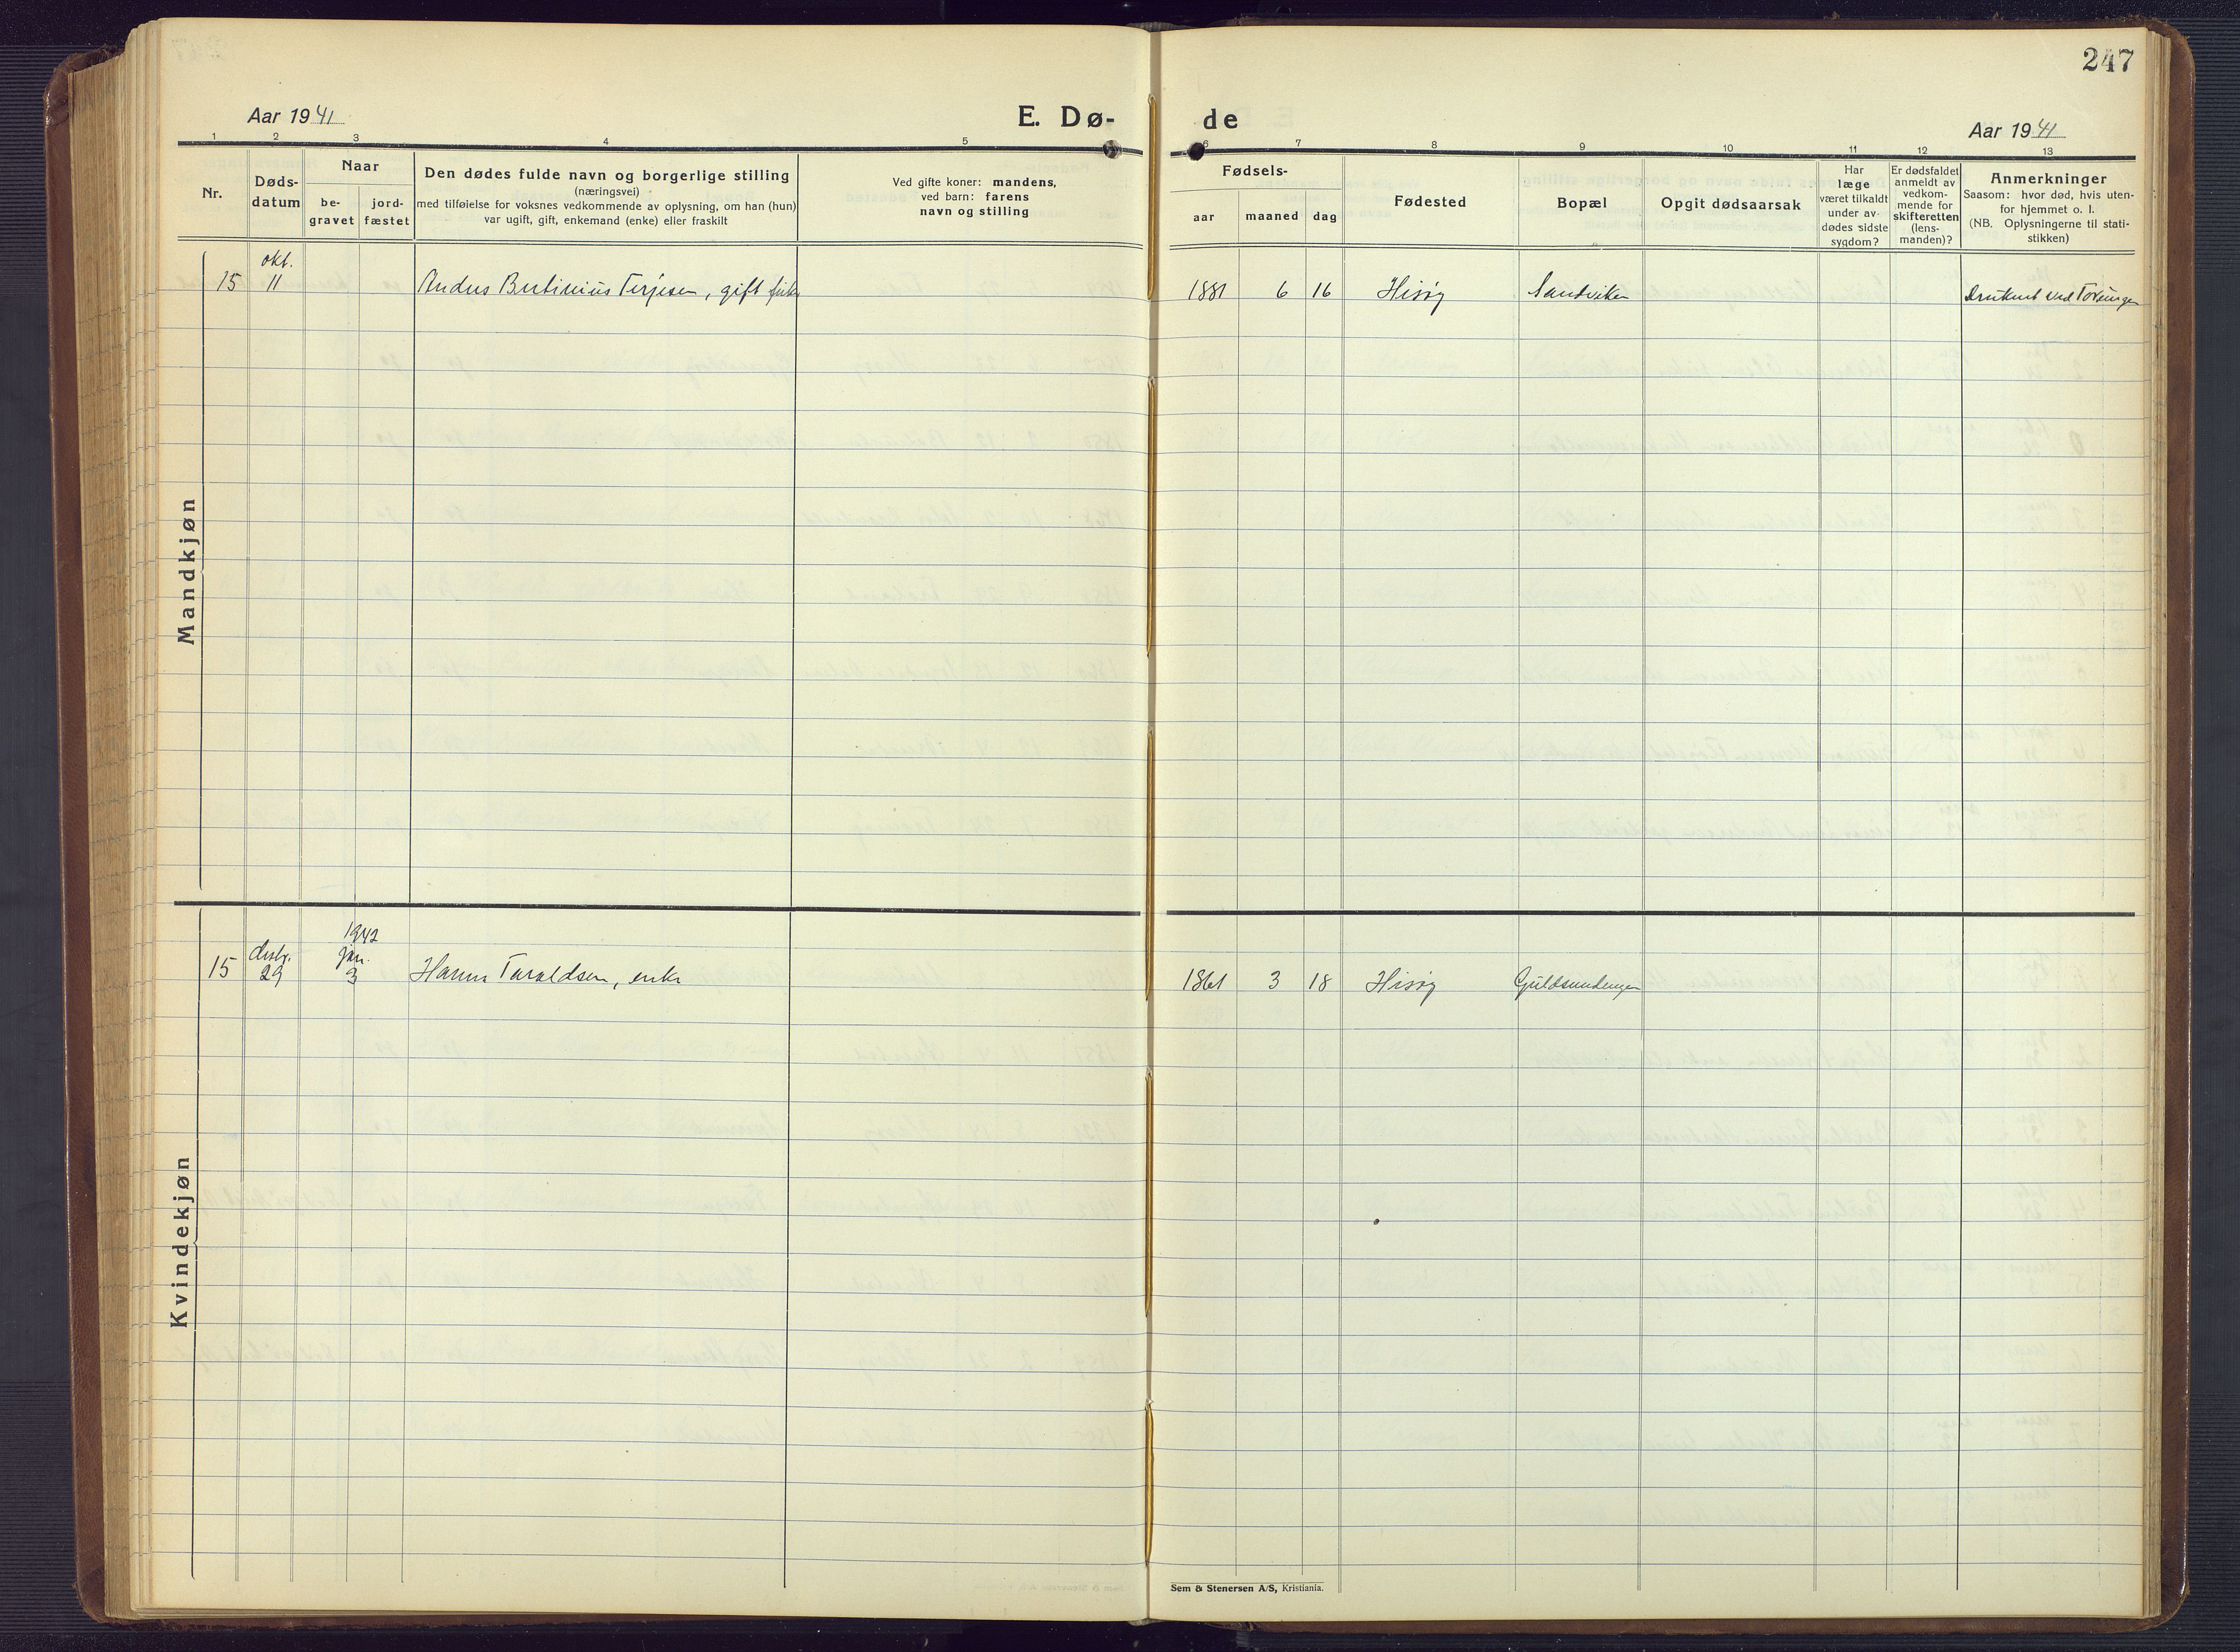 247
Aar 1941
E. Dø-
de
Aar 1941
1 2 3 4 5 6 7 8 9 10 11 12 13
Nr.
Døds-
datum
Naar
be-
gravet
jord-
fæstet
Den dødes fulde navn og borgerlige stilling
(næringsvei)
med tilføielse for voksnes vedkommende av oplysning, om han (hun)
var ugift, gift, enkemand (enke) eller fraskilt
Ved gifte koner: mandens,
ved barn: farens
navn og stilling
Fødsels-
aar
maaned
dag
Fødested
Bopæl
Opgit dødsaarsak
Har
læge
været tilkaldt
under av-
dødes sidste
sygdom?
Er dødsfaldet
anmeldt av
vedkom-
mende for
skifteretten
(lens-
manden)?
Anmerkninger
Saasom: hvor død, hvis uten-
for hjemmet o. l.
(NB. Oplysningerne til stati-
stikken)
Mandkjøn
okt.
15 11 Terjesen, gift 1881 6 16 Hisøy Sandviken Druknet ved Torungen
Kvindekjøn
1942
desbr. jan.
15 29 3 Hanna Taraldsen, enke 1861 3 18 Hisøy
Sem & Stenersen A/S, Kristiania.